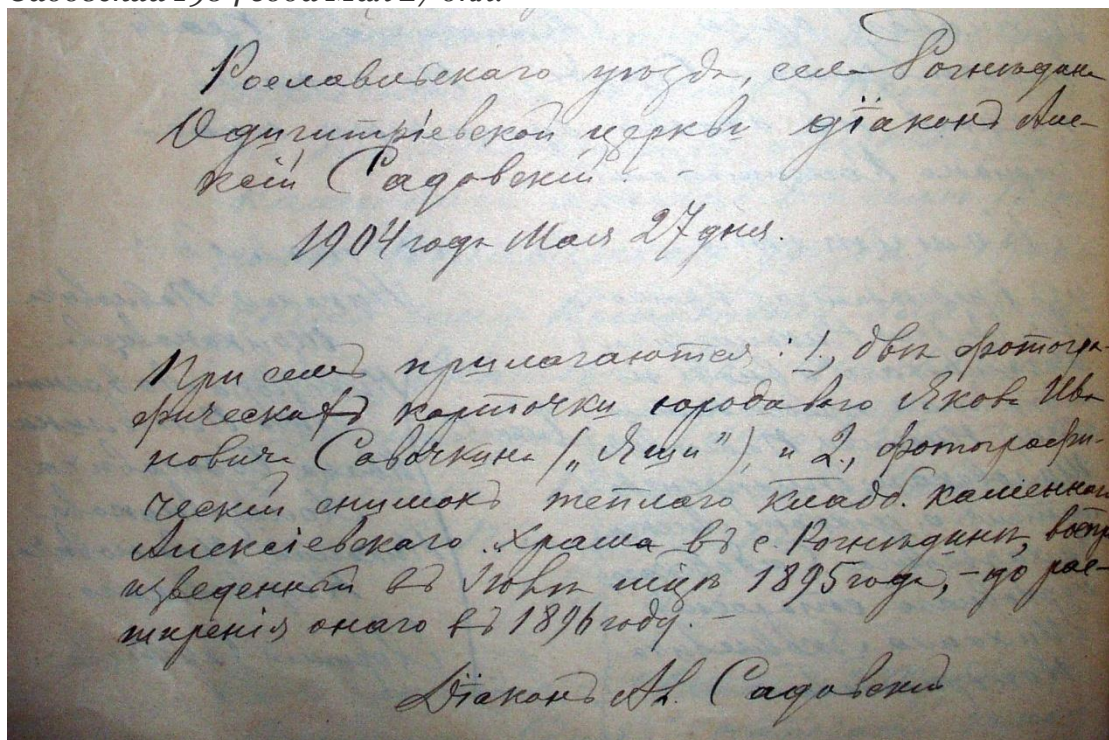 Садовский 1904 года Мая 27 дня.
Рославльскаго уѣзда, села Рогнѣдина
Одигитріевской церкви діаконъ Але-
ксій Садовскій. -
1904 года Мая 27 дня.
При семъ прилагаются: 1., двѣ фотогра-
фическихъ карточки юродиваго Якова Ива-
новича Савочкина („Яши”), и 2., фотографи-
ческій снимокъ теплаго кладб. каменнаго
Алексіевскаго храма въ с. Рогнѣдинѣ, воспро
изведенный въ Іюнѣ мѣц. 1895 года, - до рас-
ширенія онаго въ 1896 году. -
Діаконъ Ал. Садовскій